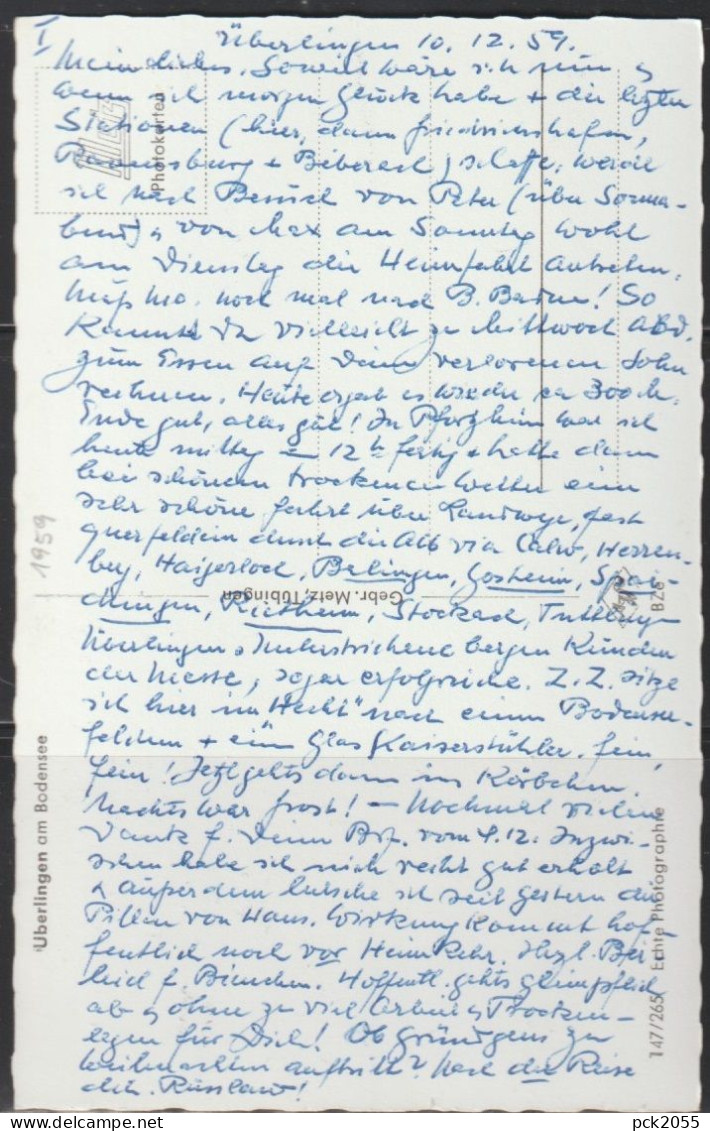 I
Überlingen 10.12.59.
Mein Liebes, Soweit wäre ich nun u
wenn ich morgen Glück habe + die letzten
Stationen (hier, dann Friedrichshafen,
Ravensburg + Biberach) schaffe, werde
ich nach Besuch von Peter (über Sonna-
bend) u von Max am Sonntag wohl
am Dienstag die Heimfahrt antreten,
muß Mo. noch mal nach B. Baden! So
kannst Du vielleicht zu Mittwoch Abd.
zum Essen auf Deinen verlorenen Sohn
rechnen. Heute ergab es wieder ca 300
Ende gut, alles gut! In Pforzheim war ich
heute mittag 12h fertig + hatte dann
bei schönem trockenem Wetter eine
sehr schöne Fahrt über Landwege, fast
querfeldein durch die Alb via Calw, Herren-
berg, Haigerloch, Balingen, Gosheim, Spai-
chingen, Rietheim, Stockach, Tuttlingen
Überlingen. Unterstrichene bergen Kunden
der Messe, sogar erfolgreiche. Z.Z. sitze
ich hier im "Hecht" nach einem Bodensee-
felchen + ein Glas Kaiserstühler. Fein,
fein! Jetzt gehts dann ins Körbchen.
Nachts war Frost! — Nochmal vielen
Dank f. Deinen Brf. vom 4.12. Inzwi-
schen habe ich mich recht gut erholt
u außerdem lutsche ich seit gestern die
Pillen von Hans. Wirkung kommt hof-
fentlich noch vor Heimkehr. Hzl. Bei-
leid f. Bienchen. Hoffentl. gehts glimpflich
ab u ohne zu viel Arbeit u Trocken-
legen für Dich! Ob Gründgens zu
Weihnachten auftritt? Nach der Reise
durch Russland!
1959
Metz
Photokarten
Gebr. Metz, Tübingen
BZ6
Überlingen am Bodensee
147/265 Echte Photographie
pck2055